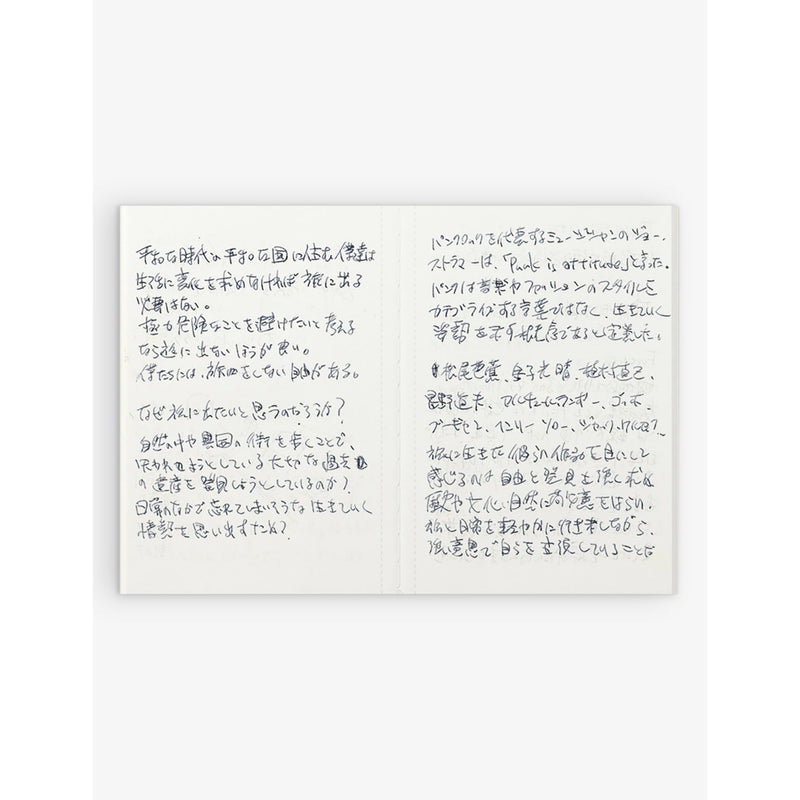 平和な時代の平和な国に住む僕達は
生活に変化を求めなければ旅に出る
必要はない。
極力危険なことを避けたいと考える
なら旅に出ないほうが良い。
僕たちには、旅をしない自由がある。
なぜ旅に出たいと思うのだろうか?
自然の中や異国の街を歩くことで、
失われようとしている大切な過去
の遺産を発見しようとしているのか?
日常のなかで忘れてしまいそうな生きていく
情熱を思い出すため?
パンクロックを代表するミュージシャンのジョー・
ストラマーは、「Punk is attitude」と言った。
パンクは音楽やファッションのスタイルを
カテゴライズする言葉ではなく、生きていく
姿勢を示す概念であると定義した。
松尾芭蕉、金子光晴、植村直己、
星野道夫、アルチュール・ランボー、ゴッホ、
ブーゼビン、ヘンリー・ソロー、ジャック・ケルアック、
旅に生きた彼らの作品を目にして
感じるのは自由と発見を強く求め
歴史や文化、自然に敬意をはらい、
旅と日常を軽やかに行き来しながら、
強い意思で自らを表現していることだ